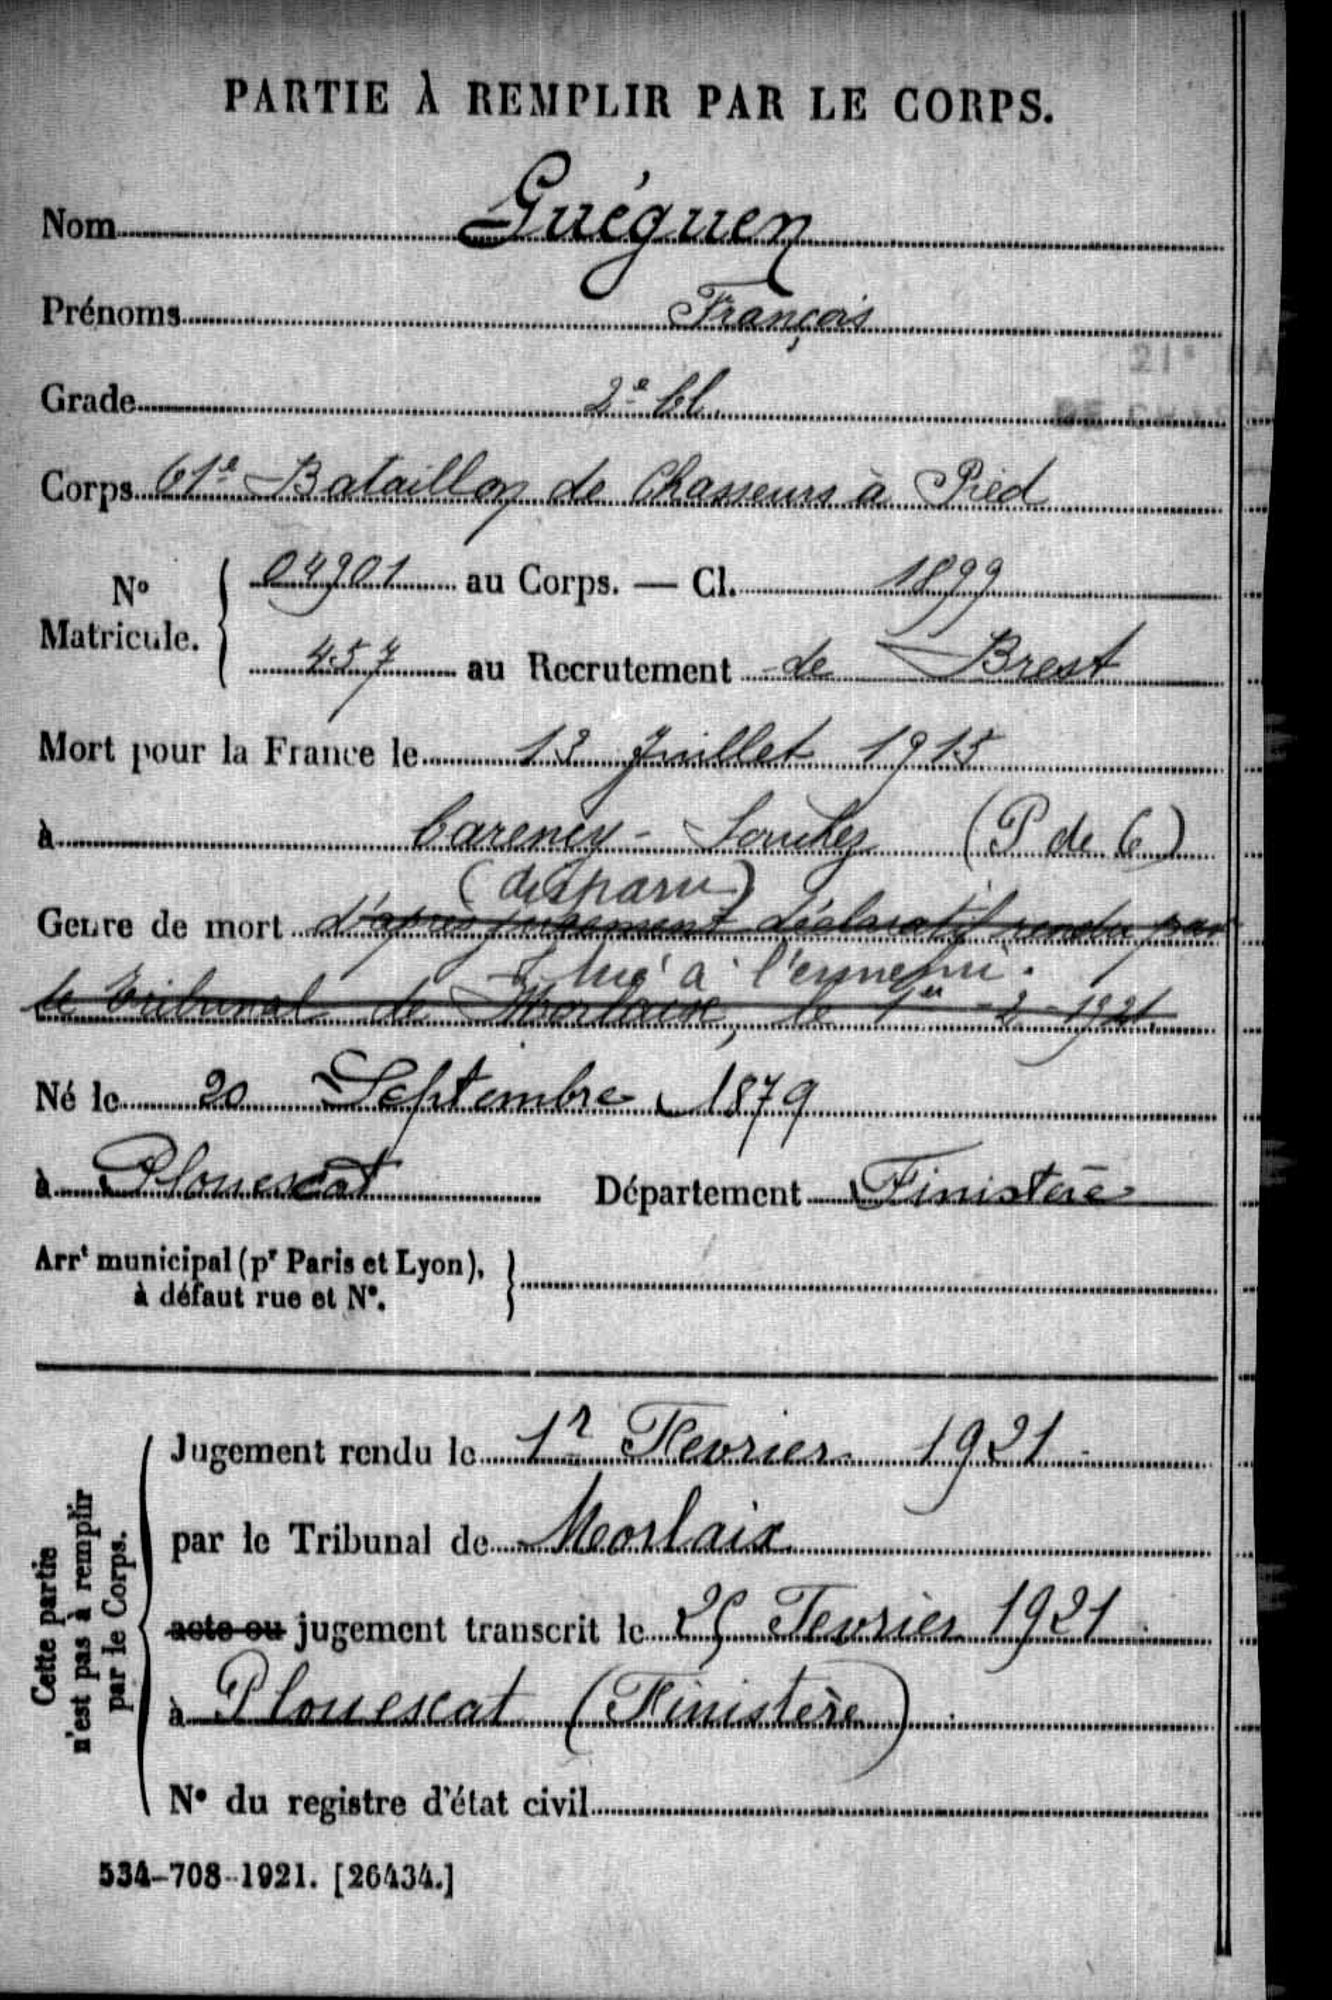 PARTIE À REMPLIR PAR LE CORPS.
Nom Guéguen
Prénoms François
Grade 2e Cl.
Corps 61e Bataillon de Chasseurs à Pied
No Matricule. 04901 au Corps. — Cl. 1899
457 au Recrutement de Brest
Mort pour la France le 13 Juillet 1915
à Carency - Souchez (P de C)
(disparu)
Genre de mort d'après jugement déclaratif rendu par
Tué à l'ennemi.
le Tribunal de Morlaix, le 1er -2-1921.
Né le 20 Septembre 1879
à Plouescat Département Finistère
Arrt municipal (pr Paris et Lyon),
à défaut rue et No.
Cette partie n'est pas à remplir par le Corps.
Jugement rendu le 1r Fevrier 1921.
par le Tribunal de Morlaix
acte ou jugement transcrit le 25 Fevrier 1921.
à Plouescat (Finistère).
No du registre d'état civil
534-708-1921. [26434.]